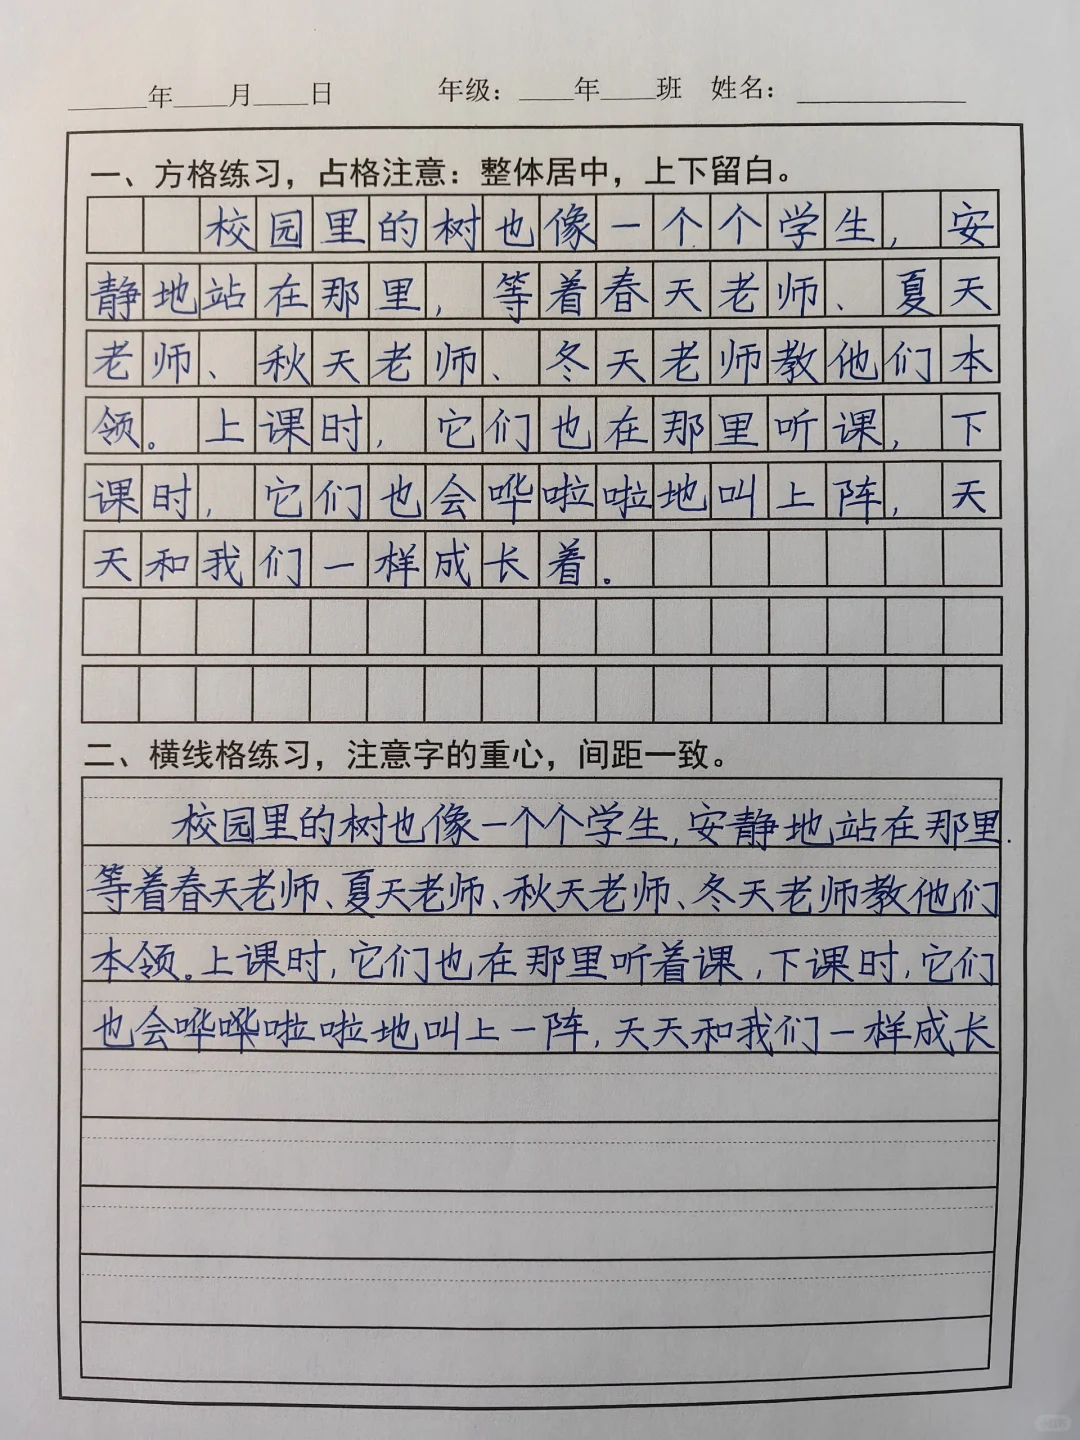 ____年____月____日 年级：____年____班 姓名：________
一、方格练习，占格注意：整体居中，上下留白。
校园里的树也像一个个学生，安
静地站在那里，等着春天老师、夏天
老师、秋天老师、冬天老师教他们本
领。上课时，它们也在那里听课，下
课时，它们也会哗啦啦地叫上阵，天
天和我们一样成长着。
二、横线格练习，注意字的重心，间距一致。
校园里的树也像一个个学生,安静地站在那里.
等着春天老师、夏天老师、秋天老师、冬天老师教他们
本领。上课时,它们也在那里听着课,下课时,它们
也会哗哗啦啦地叫上一阵,天天和我们一样成长